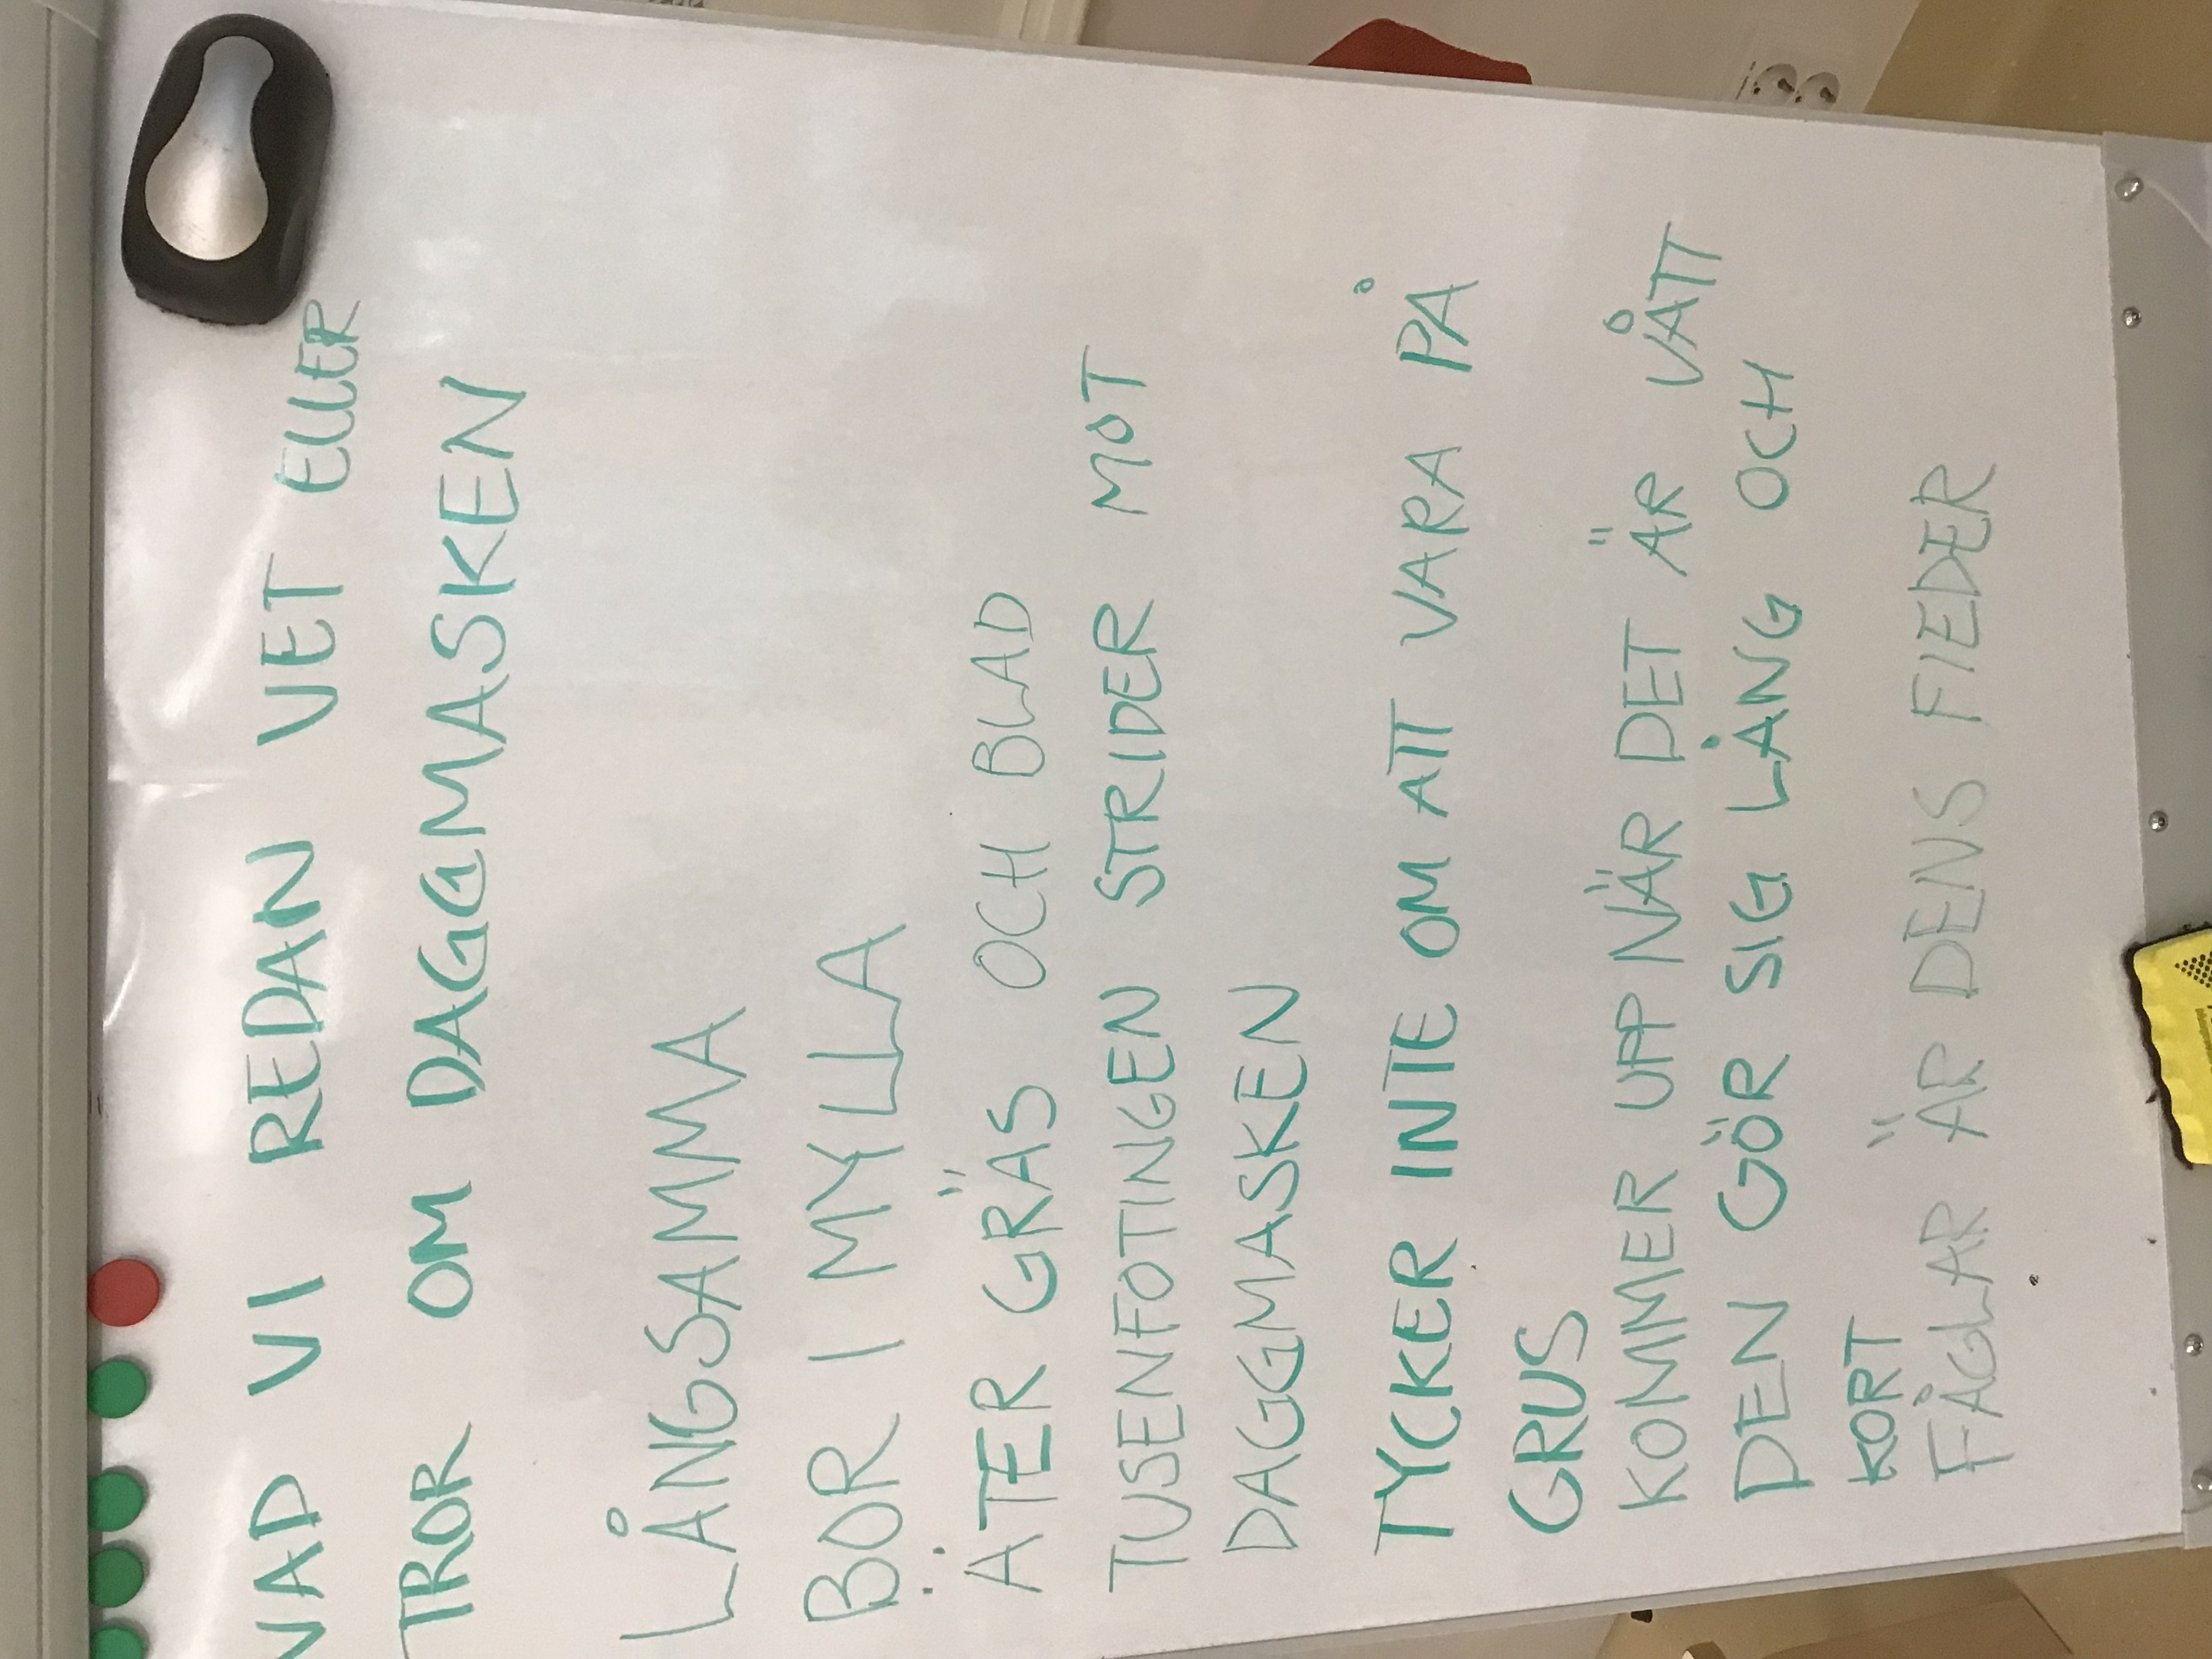 VAD VI REDAN VET ELLER
TROR OM DAGGMASKEN
LÅNGSAMMA
BOR I MYLLA
ÄTER GRÄS OCH BLAD
TUSENFOTINGEN STRIDER MOT
DAGGMASKEN
TYCKER INTE OM ATT VARA PÅ
GRUS
KOMMER UPP NÄR DET ÄR VÅTT
DEN GÖR SIG LÅNG OCH
KORT
FÅGLAR ÄR DENS FIEDER